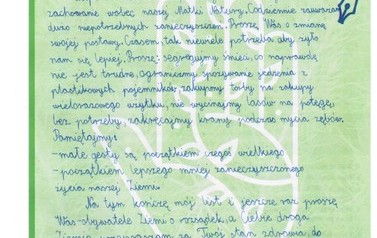 zachowanie wobec naszej Matki Natury. Codziennie zauważam
dużo niepotrzebnych zanieczyszczeń. Proszę Was o zmianę
swojej postawy. Czasem, tak niewiele potrzeba aby żyło
nam się lepiej. Proszę: segregujmy śmieci, co naprawdę
nie jest trudne, ograniczmy spożywanie jedzenia z
plastikowych pojemników, zakupmy torby na zakupy
wielorazowego użytku, nie wycinajmy lasów na potęgę,
bez potrzeby, zakręcajmy krany podczas mycia zębów.
Pamiętajmy:
-małe gesty są początkiem czegoś wielkiego
-początkiem lepszego mniej zanieczyszczonego
życia naszej Ziemi.
Na tym kończę mój list i jeszcze raz proszę
Was-obywatele Ziemi o rozsądek, a Ciebie droga
za Twój stan zdrowia, do